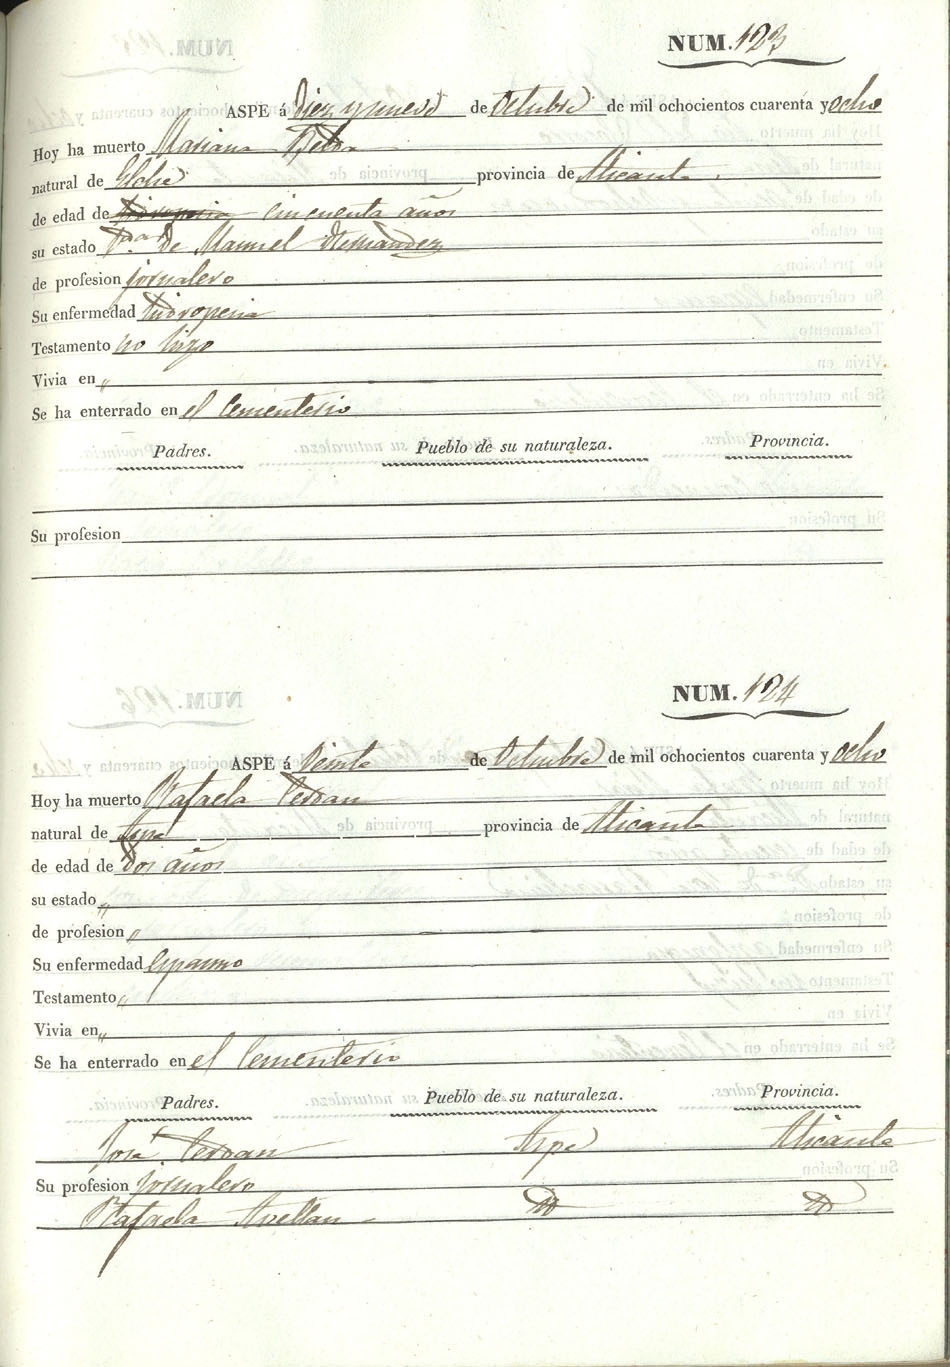 NUM. 123
ASPE á Diez y nueve de Octubre de mil ochocientos cuarenta y ocho
Hoy ha muerto Mariana
natural de Elche provincia de Alicante.
de edad de hidropesia cincuenta años
su estado de Manuel Hernandez
de profesion jornalero
Su enfermedad hidropesia
Testamento no hizo
Vivia en „
Se ha enterrado en el Cementerio
Padres. Pueblo de su naturaleza. Provincia.
Su profesion
NUM. 124
ASPE á Veinte de Octubre de mil ochocientos cuarenta y ocho
Hoy ha muerto Rafaela Cerdan
natural de Aspe provincia de Alicante
de edad de Dos años
su estado „
de profesion „
Su enfermedad Espasmo
Testamento „
Vivia en „
Se ha enterrado en el Cementerio
Padres. Pueblo de su naturaleza. Provincia.
José Cerdan Aspe Alicante
Su profesion jornalero
Rafaela Avellan